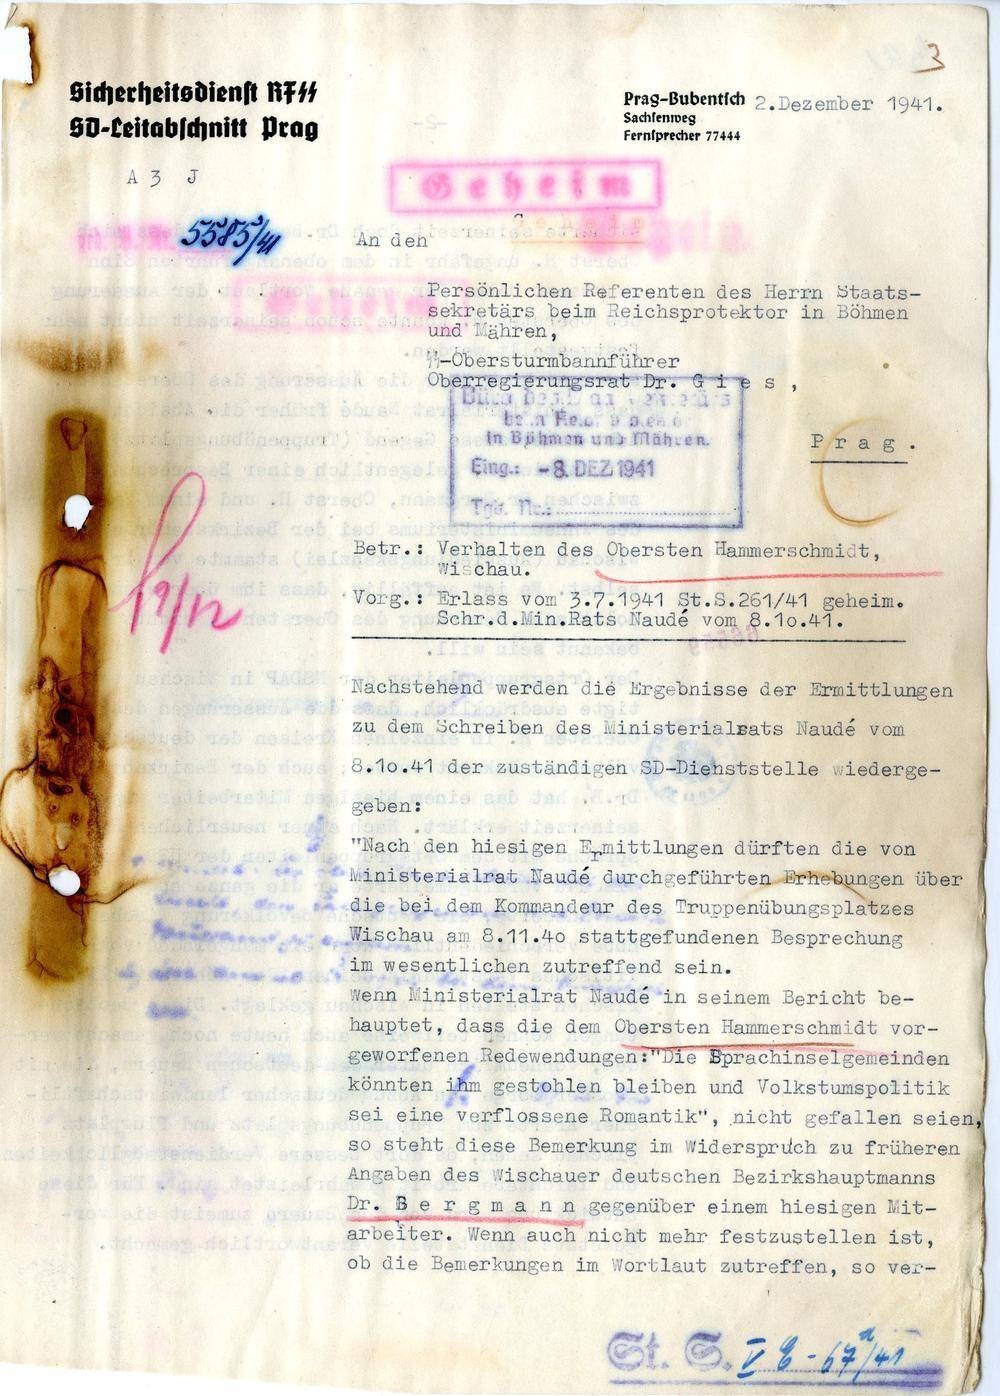 3
Sicherheitsdienst RFSS
SD-Leitabschnitt Prag
Prag-Bubentsch 2.Dezember 1941.
Sachsenweg
Fernsprecher 77444
A 3 J
Geheim
5585/41
An den
Persönlichen Referenten des Herrn Staats-
sekretärs beim Reichsprotektor in Böhmen
und Mähren,
SS-Obersturmbannführer
Oberregierungsrat Dr. G i e s ,
in Böhmen und Mähren.
Eing.: -8. DEZ. 1941
Tgb. Nr.:
P r a g .
Betr.: Verhalten des Obersten Hammerschmidt,
Wischau.
Vorg.: Erlass vom 3.7.1941 St.S.261/41 geheim.
Schr.d.Min.Rats Naudé vom 8.1o.41.
Nachstehend werden die Ergebnisse der Ermittlungen
zu dem Schreiben des Ministerialrats Naudé vom
8.1o.41 der zuständigen SD-Dienststelle wiederge-
geben:
"Nach den hiesigen Ermittlungen dürften die von
Ministerialrat Naudé durchgeführten Erhebungen über
die bei dem Kommandeur des Truppenübungsplatzes
Wischau am 8.11.4o stattgefundenen Besprechung
im wesentlichen zutreffend sein.
Wenn Ministerialrat Naudé in seinem Bericht be-
hauptet, dass die dem Obersten Hammerschmidt vor-
geworfenen Redewendungen:"Die Sprachinselgemeinden
könnten ihm gestohlen bleiben und Volkstumspolitik
sei eine verflossene Romantik", nicht gefallen seien,
so steht diese Bemerkung im Widerspruch zu früheren
Angaben des Wischauer deutschen Bezirkshauptmanns
Dr. B e r g m a n n gegenüber einem hiesigen Mit-
arbeiter. Wenn auch nicht mehr festzustellen ist,
ob die Bemerkungen im Wortlaut zutreffen, so ver-
St. S.